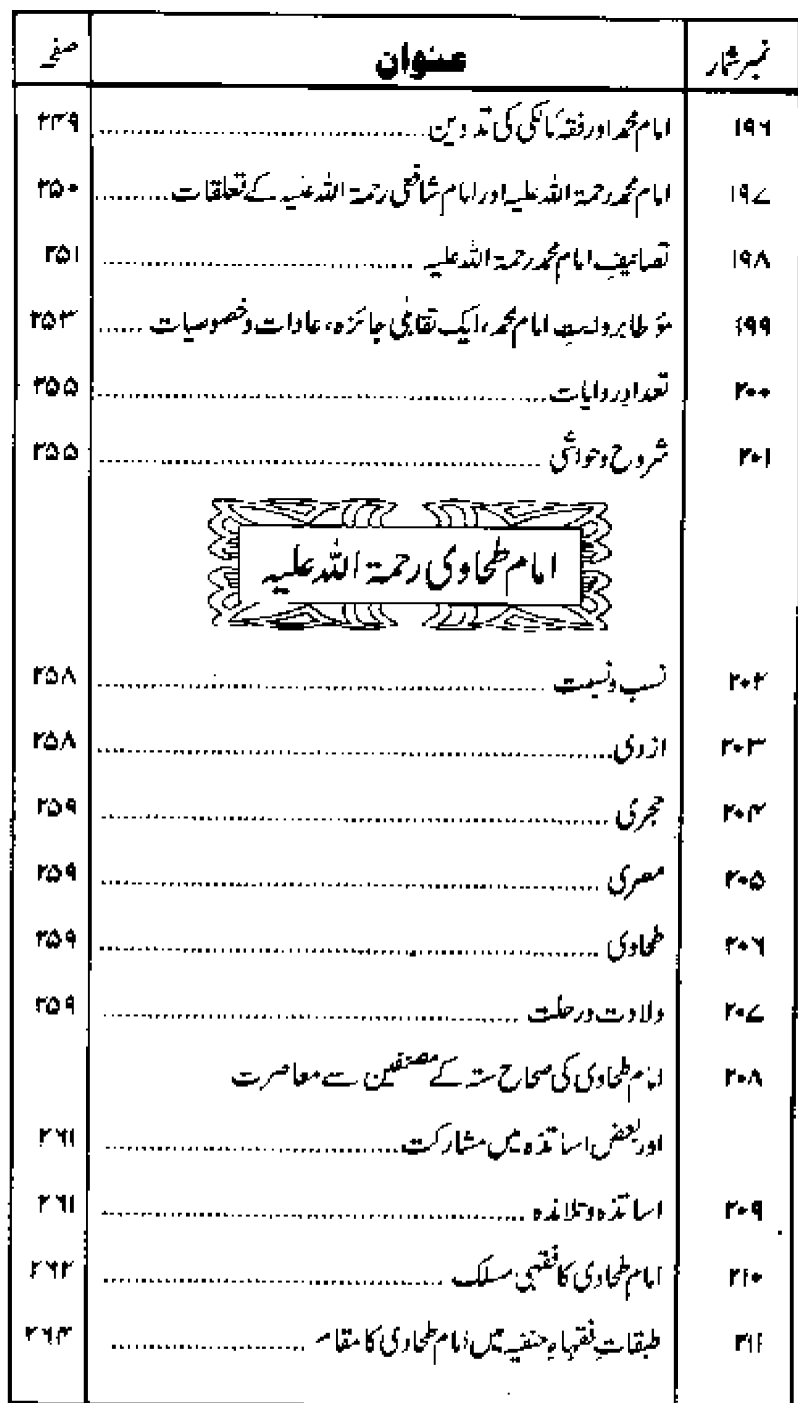 نمبر شمار عنوان صفحہ
۱۹۶ امام محمد اور فقہ مالکی کی تدوین ۲۴۹
۱۹۷ امام محمد رحمۃ اللہ علیہ اور امام شافعی رحمۃ اللہ علیہ کے تعلقات ۲۵۰
۱۹۸ تصانیفِ امام محمد رحمۃ اللہ علیہ ۲۵۱
۱۹۹ مؤطا بروایتِ امام محمد، ایک تقابلی جائزہ، عادات وخصوصیات ۲۵۳
۲۰۰ تعدادِ روایات ۲۵۵
۲۰۱ شروح وحواشی ۲۵۵
امام طحاوی رحمۃ اللہ علیہ
۲۰۲ نسب ونسبت ۲۵۸
۲۰۳ ازدی ۲۵۸
۲۰۴ حجری ۲۵۹
۲۰۵ مصری ۲۵۹
۲۰۶ طحاوی ۲۵۹
۲۰۷ ولادت ورحلت ۲۵۹
۲۰۸ امام طحاوی کی صحاح ستہ کے مصنفین سے معاصرت
اور بعض اساتذہ میں مشارکت ۲۶۱
۲۰۹ اساتذہ وتلامذہ ۲۶۱
۲۱۰ امام طحاوی کا فقہی مسلک ۲۶۲
۲۱۱ طبقاتِ فقہاءِ حنفیہ میں امام طحاوی کا مقام ۲۶۴